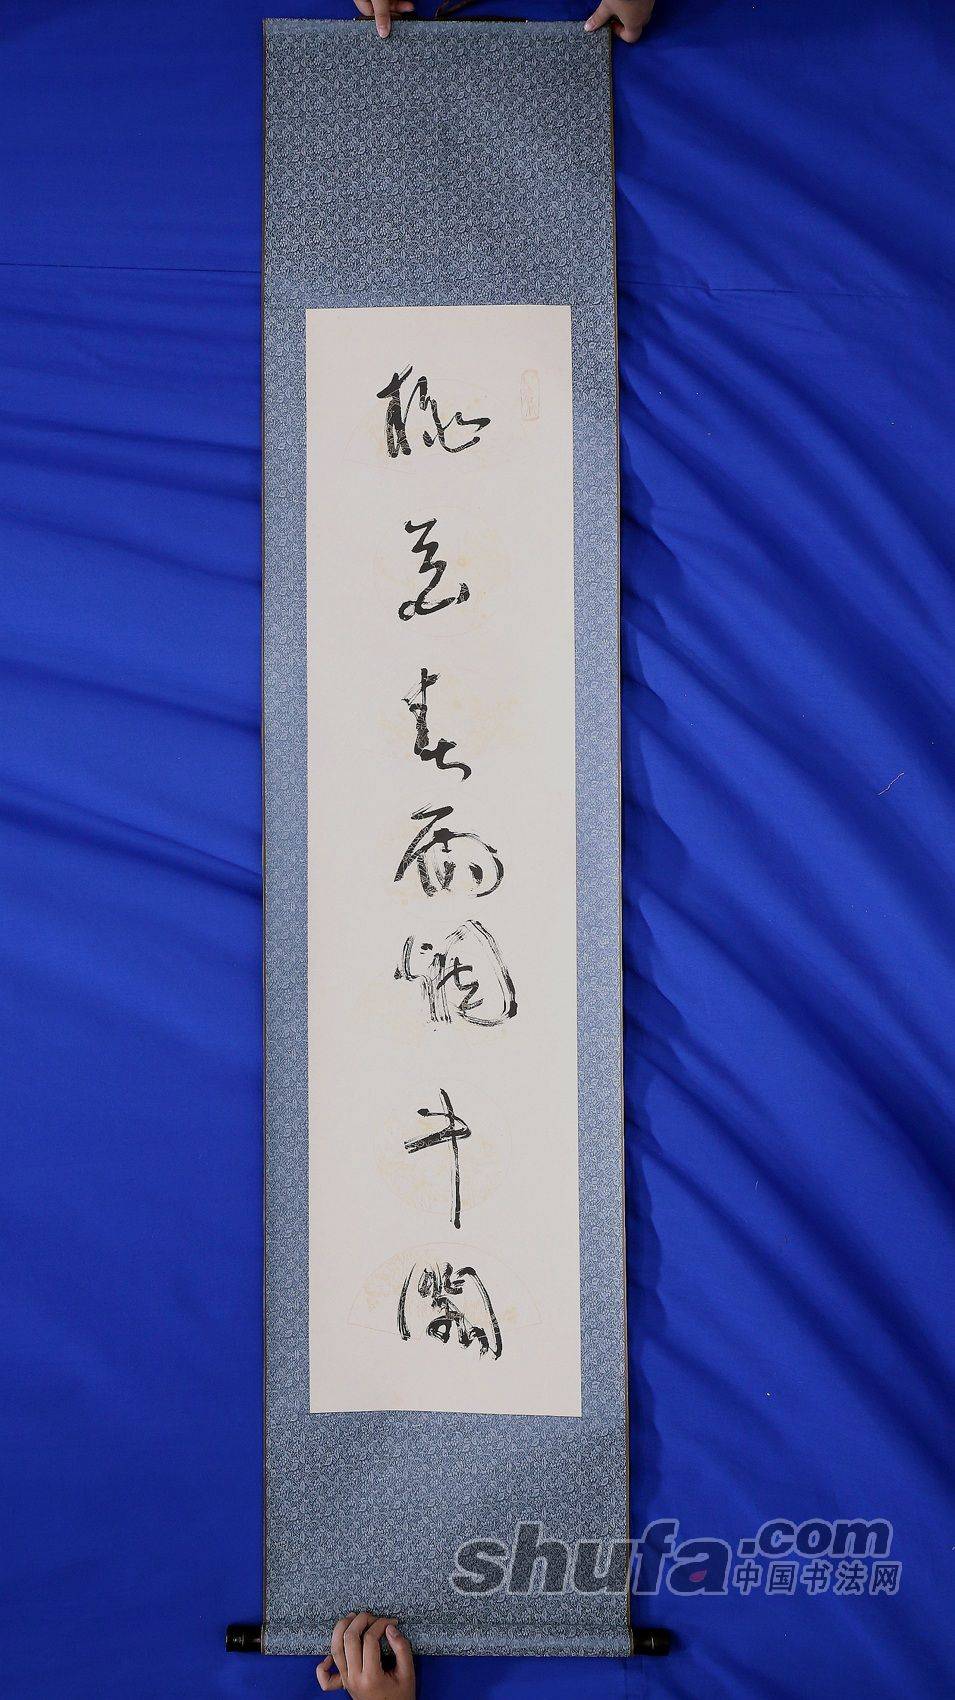 桃花春雨牛
shufa.com
中国书法网